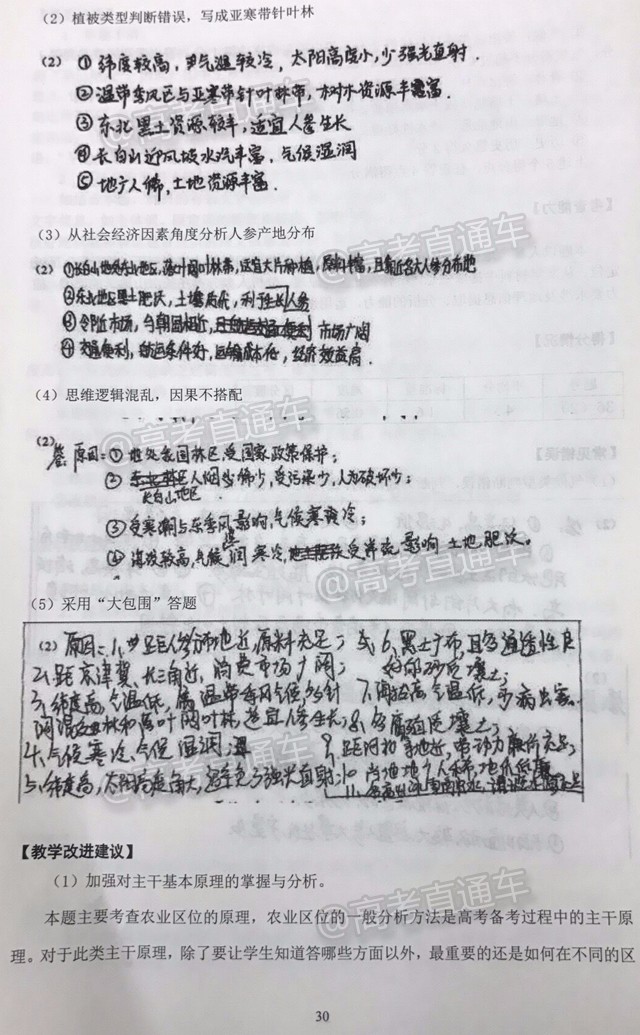 （2）植被类型判断错误，写成亚寒带针叶林
(2) ①纬度较高，气温较冷，太阳高度小，少强光直射.
②温带季风区与亚寒带针叶林带，树木资源丰富.
③东北黑土资源较丰，适宜人参生长
④长白山迎风坡水汽丰富，气候湿润
⑤地广人稀，土地资源丰富.
@高考直通车
（3）从社会经济因素角度分析人参产地分布
(2) ①长白山地处东北地区，
②东北地区黑土肥沃，土壤
③邻近市场，与朝国相近，市场广阔
④交通便利，运输成本低，经济效益高.
（4）思维逻辑混乱，因果不搭配
@高考直通车
(2) 答 原因：①地处我国林区受国家政策保护；
② 长白山地区人烟稀少，受污染少，人为破坏少；
③受寒潮与冬季风影响，气候寒凉冷；
④海拔较高，气候湿润寒冷，影响土地肥沃。
@高考直通车
（5）采用“大包围”答题
(2) 原因：1、距人参分布地近，原料充足；
2、距京津冀、长三角近，消费市场广阔；
3、纬度高，气温低，属温带季风气候，针
阔混交林和落叶阔叶林，适宜人参生长；
4、气候寒冷、气候湿润
5、纬度高，太阳高度角大，避免了强光直射；
6、黑土广布，且多通透性良
好的砂质壤土；
7、海拔高，气温低，少病虫害.
8、多腐殖质壤土；
9、动力廉价充足；
10、当地地广人稀，地价低廉
@高考直通车
【教学改进建议】
（1）加强对主干基本原理的掌握与分析。
本题主要考查农业区位的原理，农业区位的一般分析方法是高考备考过程中的主干原
理。对于此类主干原理，除了要让学生知道答哪些方面以外，最重要的还是如何在不同的区
@高考直通车
30